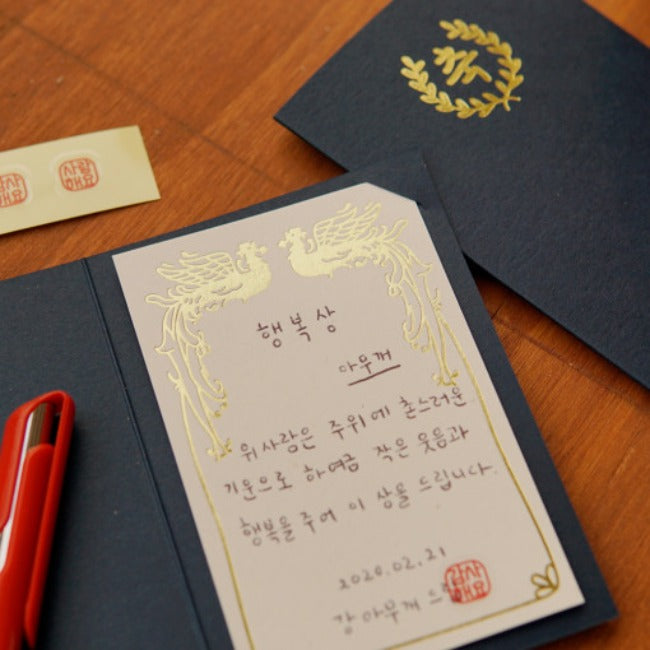 축
감사
해요
사랑
해요
행복상
아무개
위사람은 주위에 촌스러운
기운으로 하여금 작은 웃음과
행복을 주어 이 상을 드립니다.
2020.02.21
장 아무개 드림
감사
해요